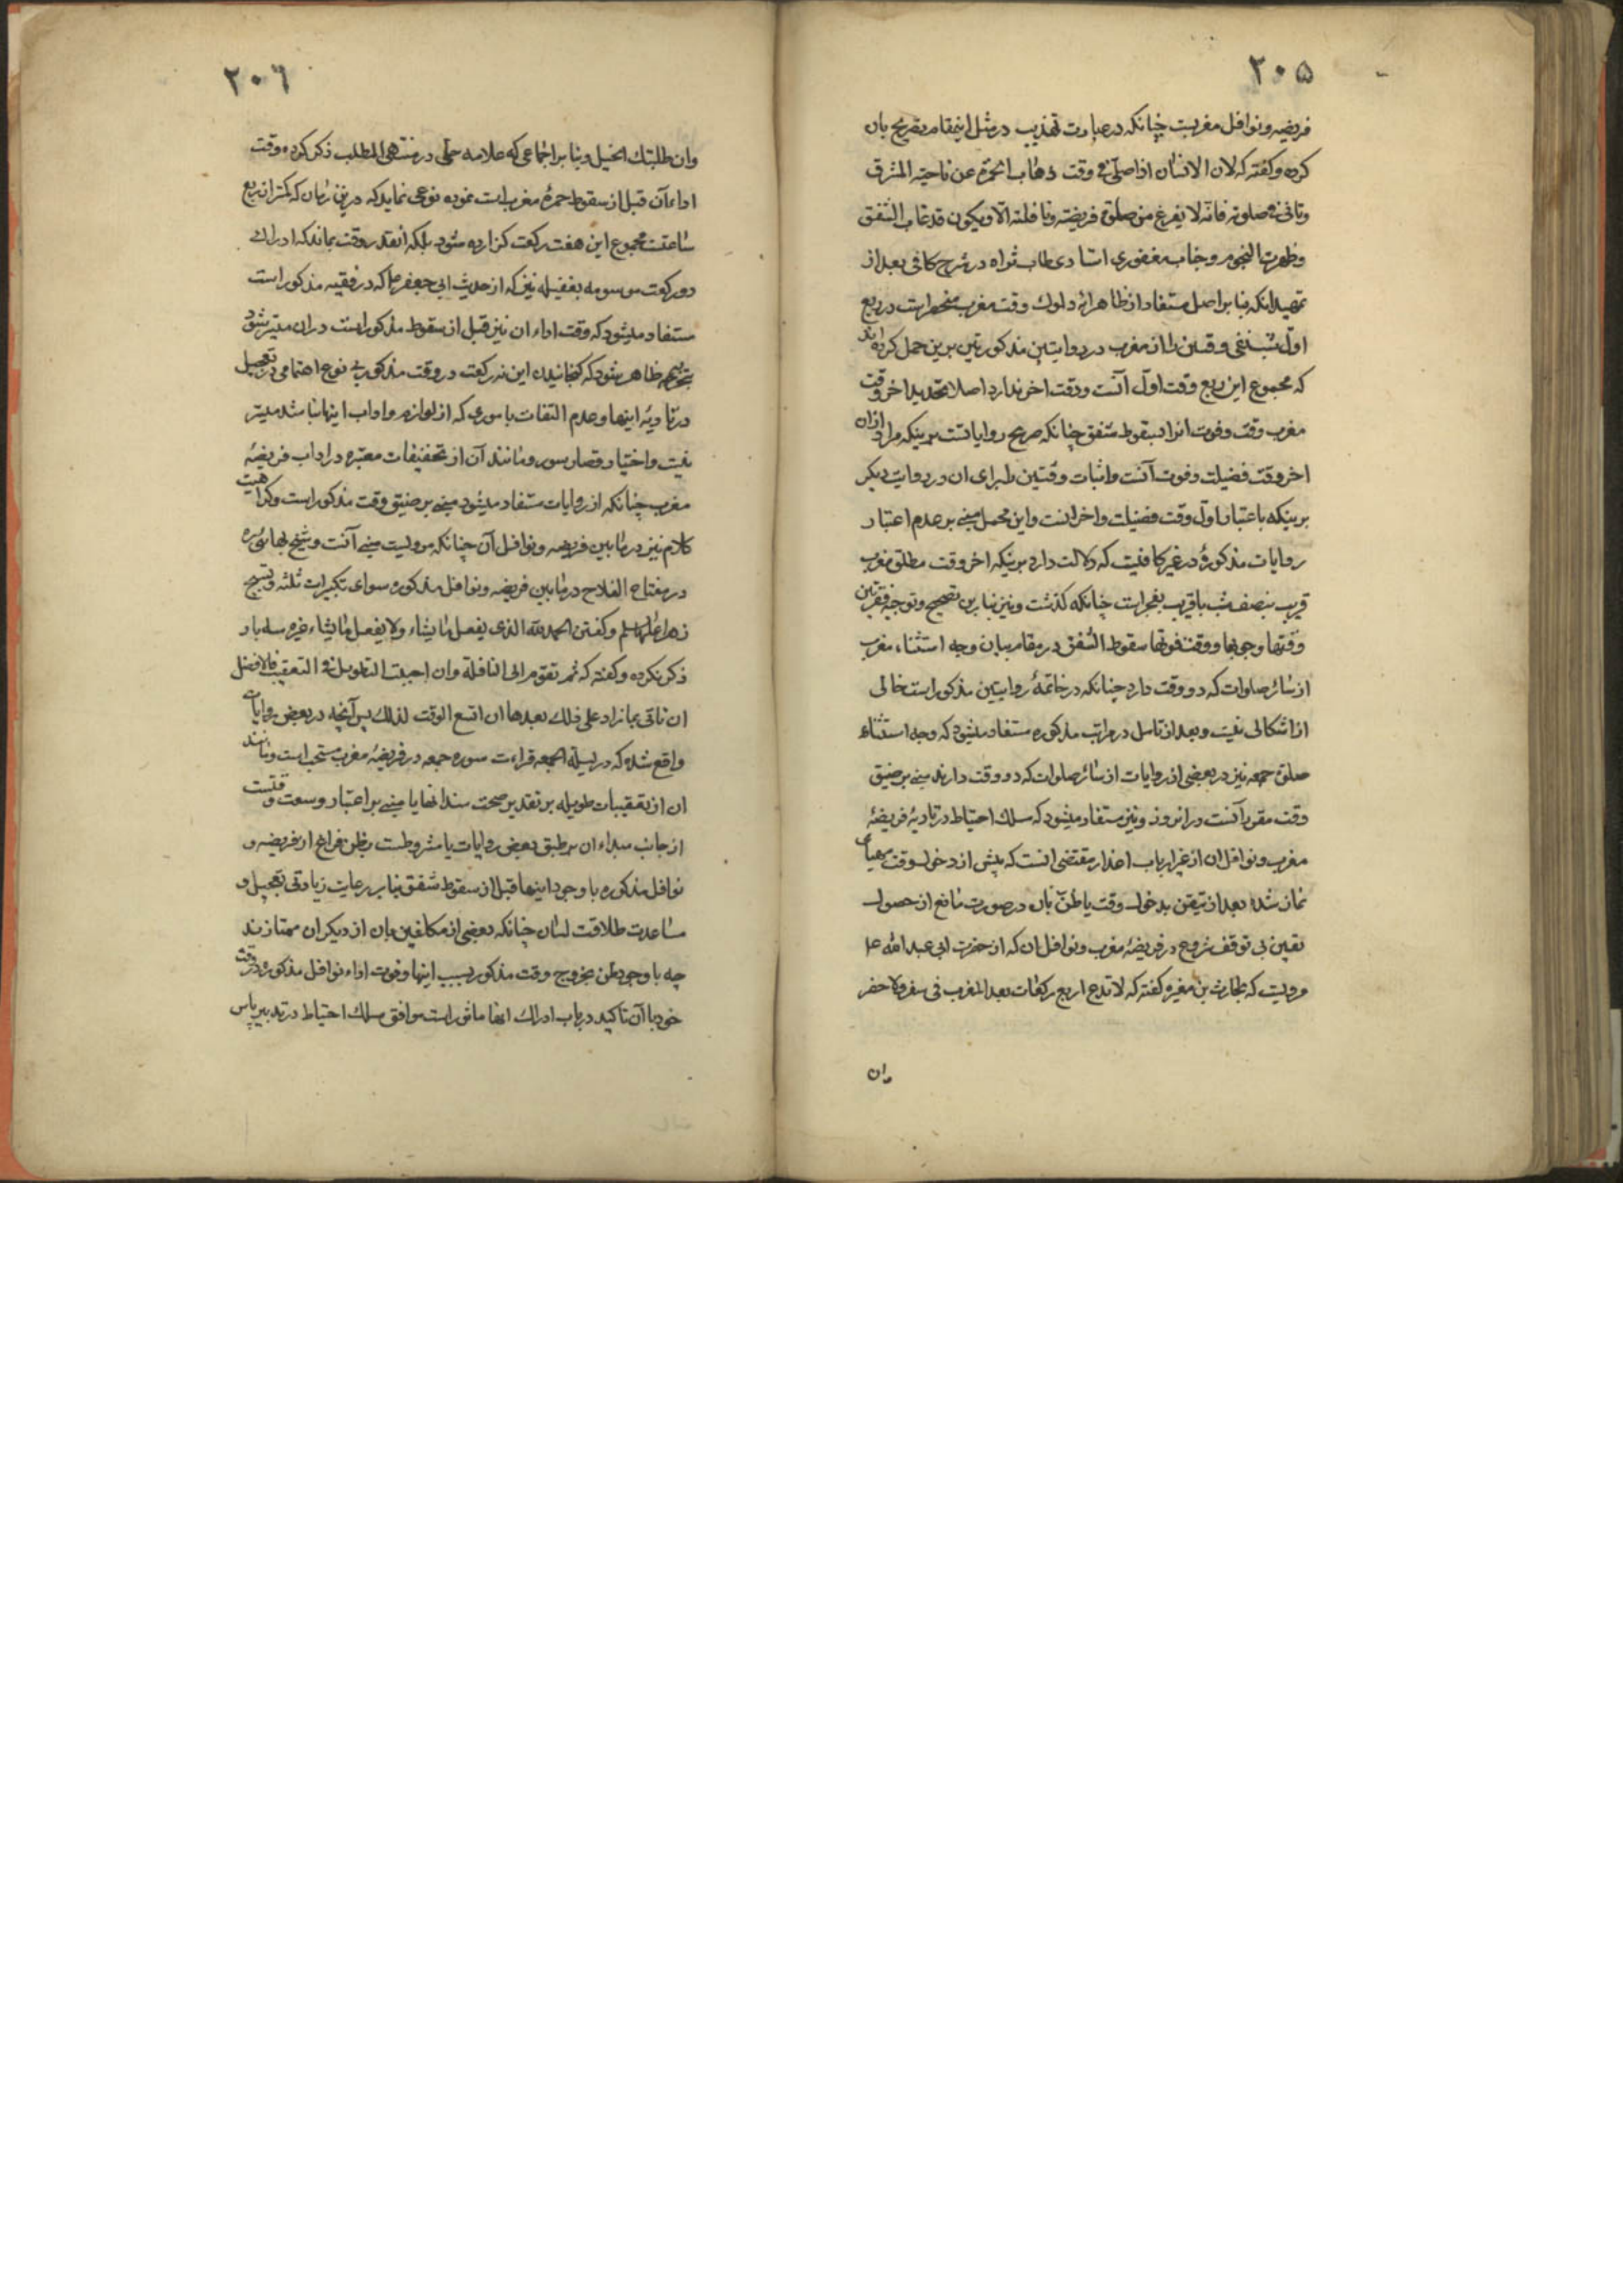 ۲۰۵
فریضه و نوافل مغربست چنانکه در عبارت تهذیب در مثل اینمقام تصریح بان
کرده و کفته که لان الانسان اذا صلی فی وقت ذهاب الحمرة عن ناحیة المشرق
وتانی فی صلوته فانه لا یفرغ من صلوة فریضته ونافلته الا ویکون قد غاب الشفق
وظهرت النجوم وجناب مغفوری استادی طاب ثراه در شرح کافی بعد از
تمهید انکه بنا بر اصل مستفاد از ظاهر ایه دلوک وقت مغرب منحصر است در ربع
اول شب نفی وقتین را از مغرب در روایتین مذکورتین برین حمل کرده اند
که مجموع این ربع وقت اول آنست ووقت اخر ندارد اصلا وتحدید اخر وقت
مغرب وقت وفوت انرا بسقوط شفق چنانکه صریح روایاتست برینکه مراد ازان
اخر وقت فضیلت وفوت آنست واثبات وقتین را برای ان در روایت دیکر
برینکه باعتبار اول وقت فضیلت واخر انست واین محمل مبنی بر عدم اعتبار
روایات مذکوره در غیر کافیست که دلالت دارد برینکه اخر وقت مطلق مغرب
قریب بنصف شب یا قریب بفجر است چنانکه کذشت ونیز بنا برین تصحیح وتوجیه فقرتین
وقتها وجوبها ووقت فوتها سقوط الشفق در مقام بیان وجه استثناء مغرب
از سائر صلوات که دو وقت دارد چنانکه در خاتمهٔ روایتین مذکور است خالی
از اشکالی نیست وبعد از تامل در مراتب مذکوره مستفاد میشود که وجه استثناء
صلوة جمعه نیز در بعضی از روایات از سائر صلوات که دو وقت دارند مبنی بر ضیق
وقت مقرر آنست در انروز ونیز مستفاد میشود که مسلک احتیاط در تادیهٔ فریضهٔ
مغرب ونوافل ان از غیر ارباب اعذار مقتضی انست که پیش از دخول وقت مهیای
نماز شده بعد از تیقن بدخول وقت یا ظن بان در صورت مانع از حصول
یقین بی توقف شروع در فریضهٔ مغرب ونوافل ان که از حضرت ابی عبد الله ع
مرویست که بحارث بن مغیره کفته که لا تدع اربع رکعات بعد المغرب فی سفر ولا حضر
وان
۲۰۶
وان طلبتك الخیل وبنا بر اجماعی که علامه حلی در منتهی المطلب ذکر کرده وقت
اداء آن قبل از سقوط حمرهٔ مغرب است نموده نوعی نماید که درین زمان که کمتر از ربع
ساعتست مجموع این هفت رکعت کزارده شود بلکه انقدر وقت بماند که ادراك
دو رکعت موسومه بغفیله نیز که از حدیث ابی جعفر ع که در فقیه مذکور است
مستفاد میشود که وقت اداء ان نیز قبل از سقوط مذکور است دران میسر شود
ظاهر میشود که کنجانیدن این نه رکعت در وقت مذکور بی نوع اهتمامی در تعجیل
در تادیه اینها وعدم التفات باموری که از لوازم واداب اینها نباشد میسر
نیست واختیار قصار سور ومانند آن از تخفیفات معتبره در اداب فریضهٔ
مغرب چنانکه از روایات مستفاد میشود مبنی بر ضیق وقت مذکور است وکراهیت
کلام نیز در مابین فریضه ونوافل آن چنانکه مرویست مبنی آنست وشیخ بهائی ره
در مفتاح الفلاح در مابین فریضه ونوافل مذکوره سوای تکبیرات ثلثه وتسبیح
زهرا وکفتن الحمد لله الذی یفعل ما یشاء ولا یفعل ما یشاء غیره سه بار
ذکر نکرده وکفته که ثم تقوم الی النافلة وان احببت التطویل فی التعقیب فالافضل
ان تاتی بما زاد علی ذلك بعدها ان اتسع الوقت لذلك پس آنچه در بعض روایات
واقع شده که در لیلة الجمعه قراءت سوره جمعه در فریضهٔ مغرب مستحب است ومانند
ان از تعقیبات طویله بر تقدیر صحت سند انها یا مبنی بر اعتبار وسعت وقتست
از جانب مبداء ان بر طبق بعض روایات یا مشروطست بظن فراغ از فریضه و
نوافل مذکوره با وجود اینها قبل از سقوط شفق بنا بر رعایت زیادتی تعجیل و
مساعدت طلاقت لسان چنانکه بعضی از مکلفین بان از دیکران ممتازند
چه با وجود ظن بخروج وقت مذکور بسبب اینها وفوت اداء نوافل مذکوره در وقت
خود با آن تاکید در باب ادراك انها ماثور است موافق مسلك احتیاط در تدبیر پاس